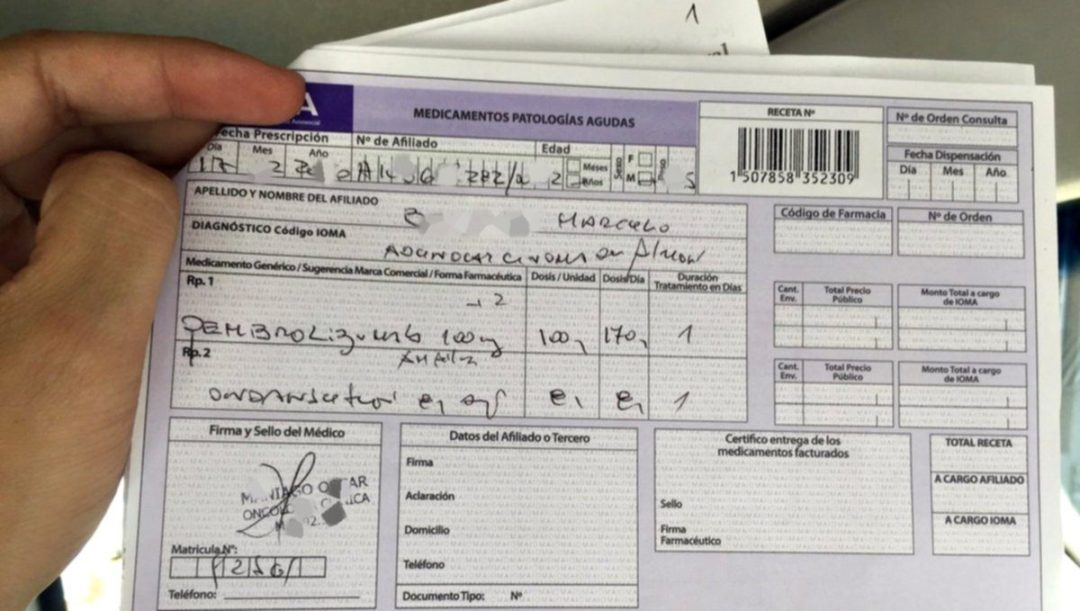 1
A
MEDICAMENTOS PATOLOGÍAS AGUDAS
RECETA Nº
1 507858 352309
Nº de Orden Consulta
Fecha Dispensación
Día Mes Año
echa Prescripción Nº de Afiliado Edad
Día Mes Año Meses Años Sexo F M Peso
17 2
APELLIDO Y NOMBRE DEL AFILIADO
B MARCELO
DIAGNÓSTICO Código IOMA
Código de Farmacia Nº de Orden
Medicamento Genérico / Sugerencia Marca Comercial / Forma Farmacéutica Dosis / Unidad Dosis/Día Duración Tratamiento en Días
Rp. 1
2
PEMBROLizumab 100 100 170 1
Rp. 2
1
Cant. Env. Total Precio Público Monto Total a cargo de IOMA
Cant. Env. Total Precio Público Monto Total a cargo de IOMA
Firma y Sello del Médico
AR
Matrícula Nº:
Teléfono:
Datos del Afiliado o Tercero
Firma
Aclaración
Domicilio
Teléfono
Documento Tipo: Nº
Certifico entrega de los
medicamentos facturados
Sello
Firma
Farmacéutico
TOTAL RECETA
A CARGO AFILIADO
A CARGO IOMA